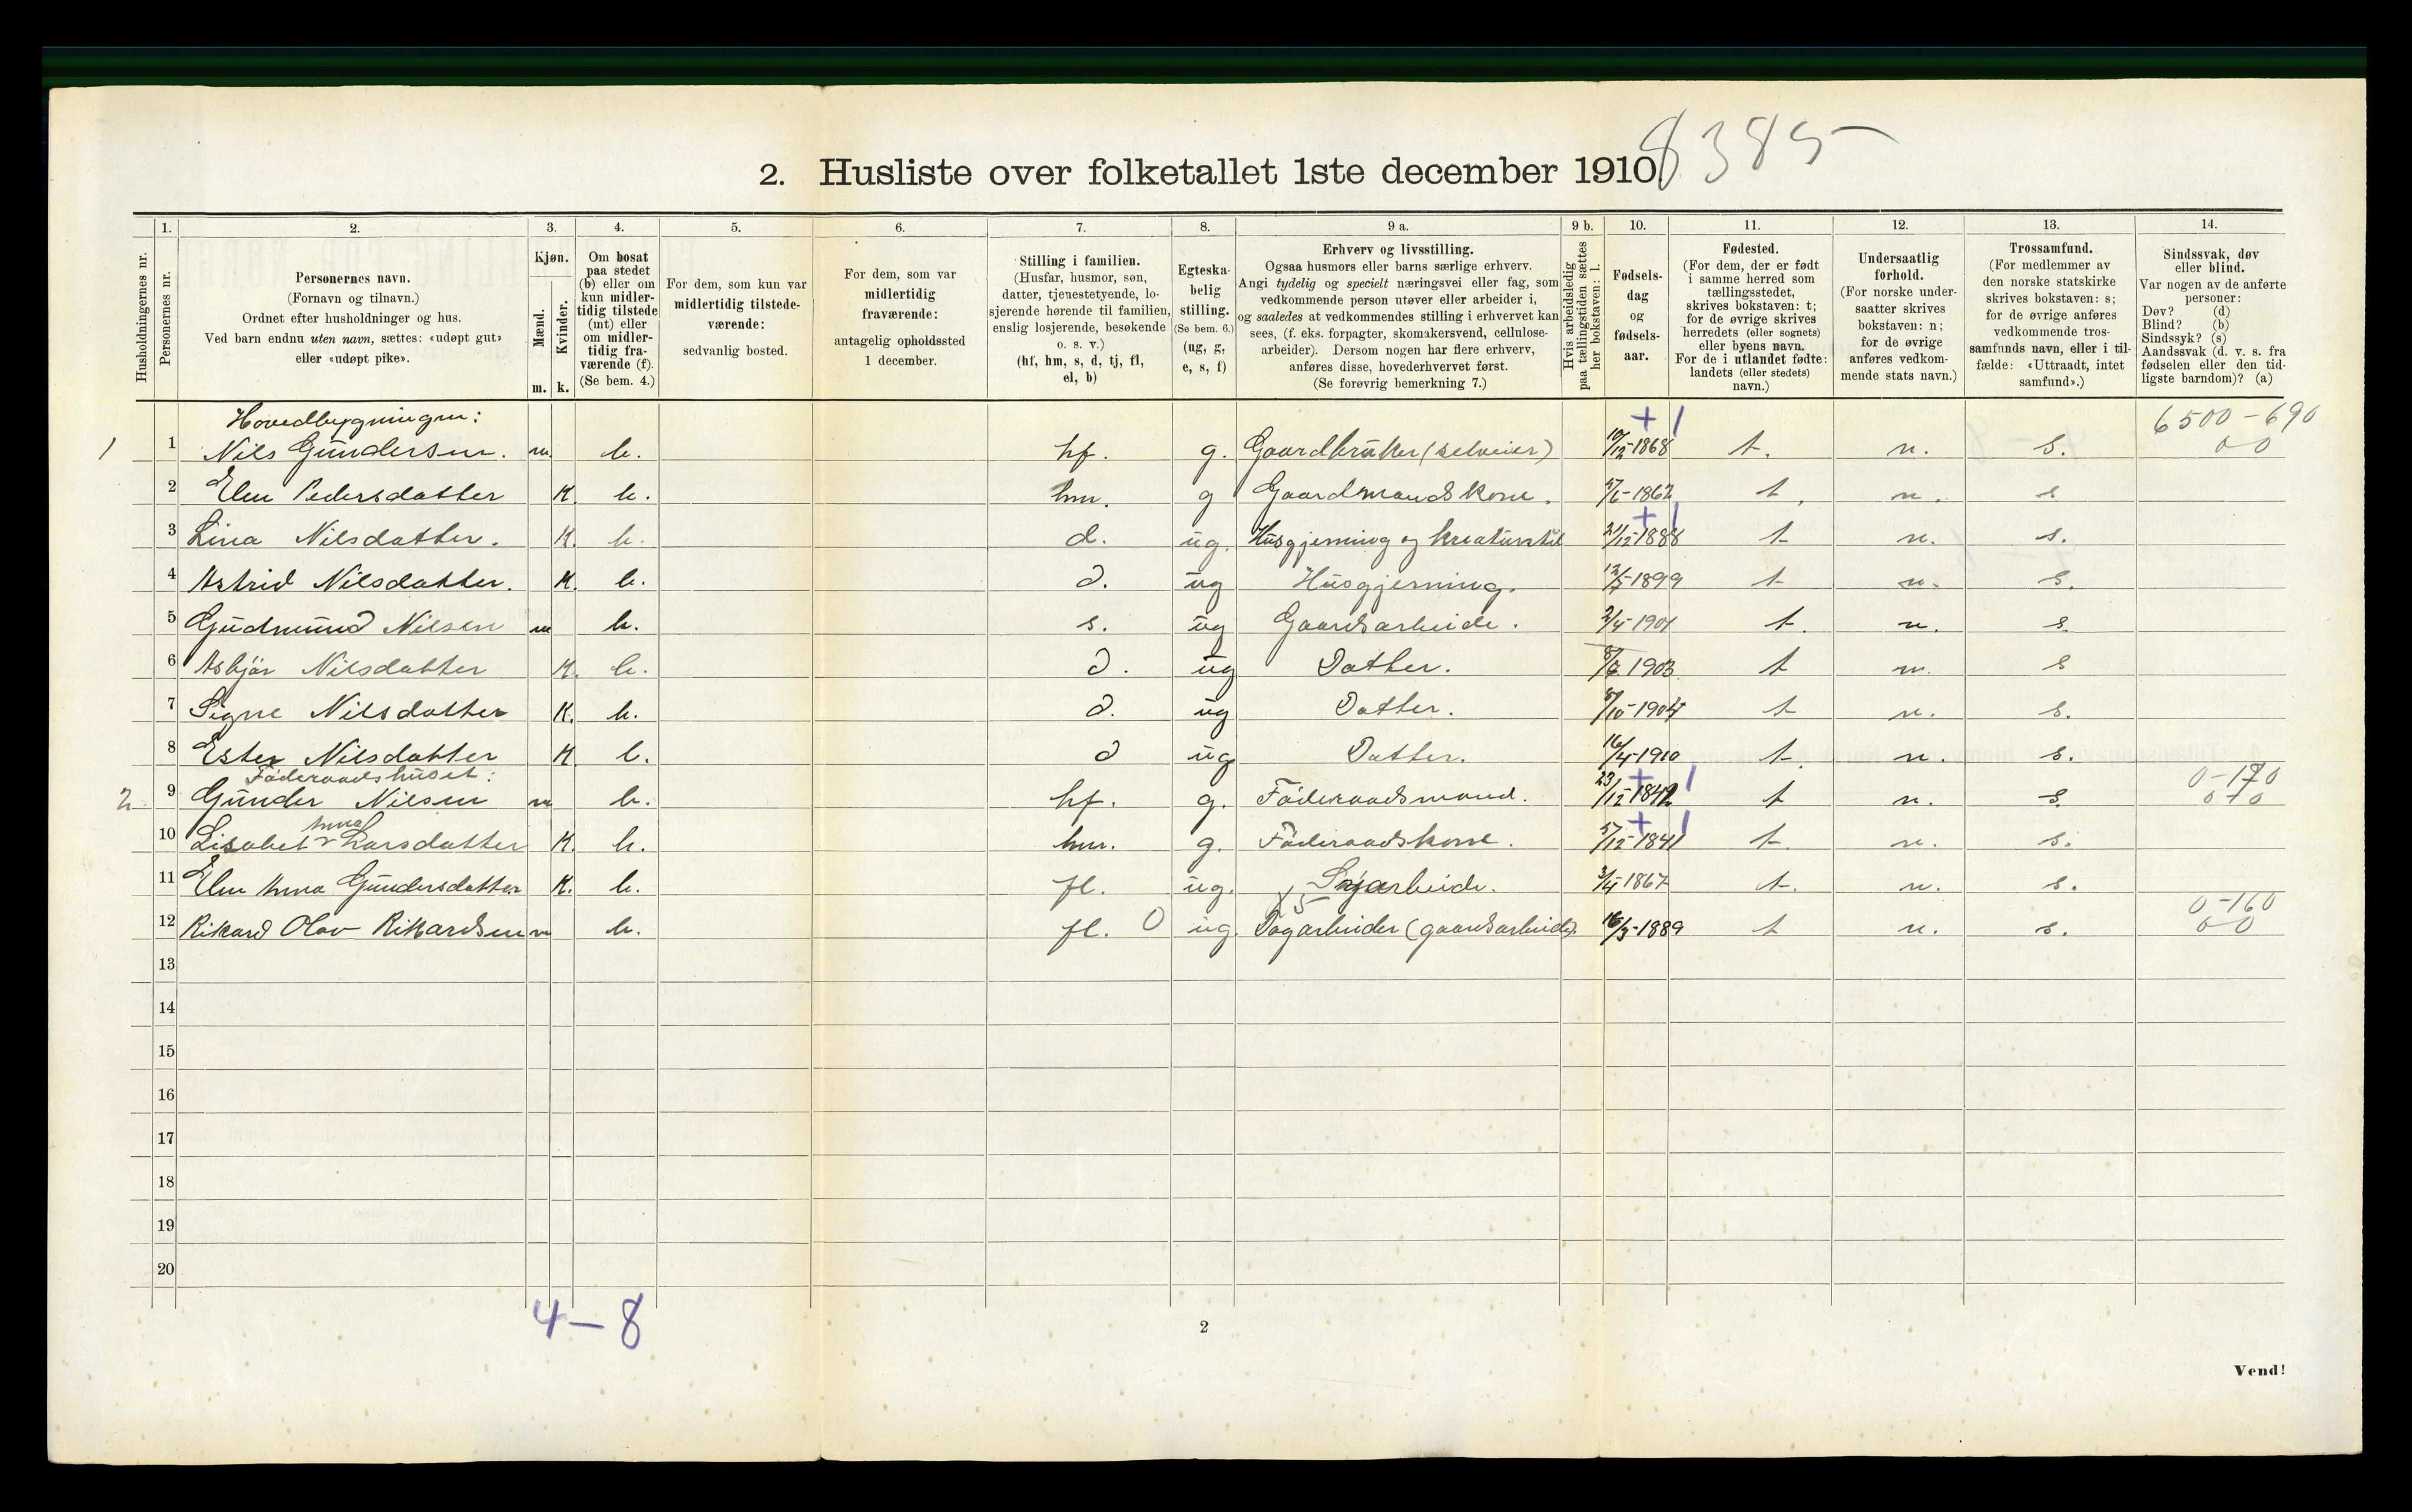 8385
2. Husliste over folketallet 1ste december 1910.
1. 2. 3. 4. 5. 6. 7. 8. 9 a. 9 b. 10. 11. 12. 13. 14.
Husholdningernes nr.
Personernes nr.
Personernes navn.
(Fornavn og tilnavn.)
Ordnet efter husholdninger og hus.
Ved barn endnu uten navn, sættes: «udøpt gut»
eller «udøpt pike».
Kjøn.
Mænd.
Kvinder.
m. k.
Om bosat
paa stedet
(b) eller om
kun midler-
tidig tilstede
(mt) eller
om midler-
tidig fra-
værende (f).
(Se bem. 4.)
For dem, som kun var
midlertidig tilstede-
værende:
sedvanlig bosted.
For dem, som var
midlertidig
fraværende:
antagelig opholdssted
1 december.
Stilling i familien.
(Husfar, husmor, søn,
datter, tjenestetyende, lo-
sjerende hørende til familien,
enslig losjerende, besøkende
o. s. v.)
(hf, hm, s, d, tj, fl,
el, b)
Egteska-
belig
stilling.
(Se bem. 6.)
(ug, g,
e, s, f)
Erhverv og livsstilling.
Ogsaa husmors eller barns særlige erhverv.
Angi tydelig og specielt næringsvei eller fag, som
vedkommende person utøver eller arbeider i,
og saaledes at vedkommendes stilling i erhvervet kan
sees, (f. eks. forpagter, skomakersvend, cellulose-
arbeider). Dersom nogen har flere erhverv,
anføres disse, hovederhvervet først.
(Se forøvrig bemerkning 7.)
Hvis arbeidsledig
paa tællingstiden sættes
her bokstaven: l.
Fødsels-
dag
og
fødsels-
aar.
Fødested.
(For dem, der er født
i samme herred som
tællingsstedet,
skrives bokstaven: t;
for de øvrige skrives
herredets (eller sognets)
eller byens navn.
For de i utlandet fødte:
landets (eller stedets)
navn.)
Undersaatlig
forhold.
(For norske under-
saatter skrives
bokstaven: n;
for de øvrige
anføres vedkom-
mende stats navn.)
Trossamfund.
(For medlemmer av
den norske statskirke
skrives bokstaven: s;
for de øvrige anføres
vedkommende tros-
samfunds navn, eller i til-
fælde: «Uttraadt, intet
samfund».)
Sindssvak, døv
eller blind.
Var nogen av de anførte
personer:
Døv? (d)
Blind? (b)
Sindssyk? (s)
Aandssvak (d. v. s. fra
fødselen eller den tid-
ligste barndom)? (a)
Hovedbygningen: + 1 6500-690
1 1 Nils Gundersen. m. b. hf. g. Gaardbruker (selveier) 10/12-1868 t. n. s. 0-0
2 Elen Pedersdatter K b. hm. g Gaardmandskone. 1862 t. n. s
+ 1
3 Lina Nilsdatter. K. b. d. ug. Husgjerning og kreaturstel 21/12-1888 t n. s.
4 Astrid Nilsdatter. K. b. d. ug Husgjerning. 12/5-1899 t n. s.
5 Gudmund Nilsen m b. s. ug Gaardsarbeide. 1901 t. n. s.
6 Asbjör Nilsdatter K. b. d. ug Datter. 1903 t n. s
7 Signe Nilsdatter K. b. d. ug Datter. 8/10-1904 t n. s.
8 Ester Nilsdatter K. b. d ug Datter. 16/4-1910 t. n. s.
Föderaadshuset: + 1 0-170
2 9 Gunder Nilsen m b. hf. g. Föderaadsmand. 23/12-1842 t n. s. 0-0
Anna + 1
10 Lisabet Larsdatter K. b. hm. g. Föderaadskone. 5/12-1841 t. n. s.
11 Elen Anna Gundersdatter K. b. fl. ug. Syarbeide. 3/4 1867 t. n. s.
0-160
12 Rikard Olav Rikardsen m b. fl. 0 ug. Dagarbeider (gaardsarbeide). 16/3-1889 t n. s. 0-0
13
14
15
16
17
18
19
20
4-8
2
Vend!